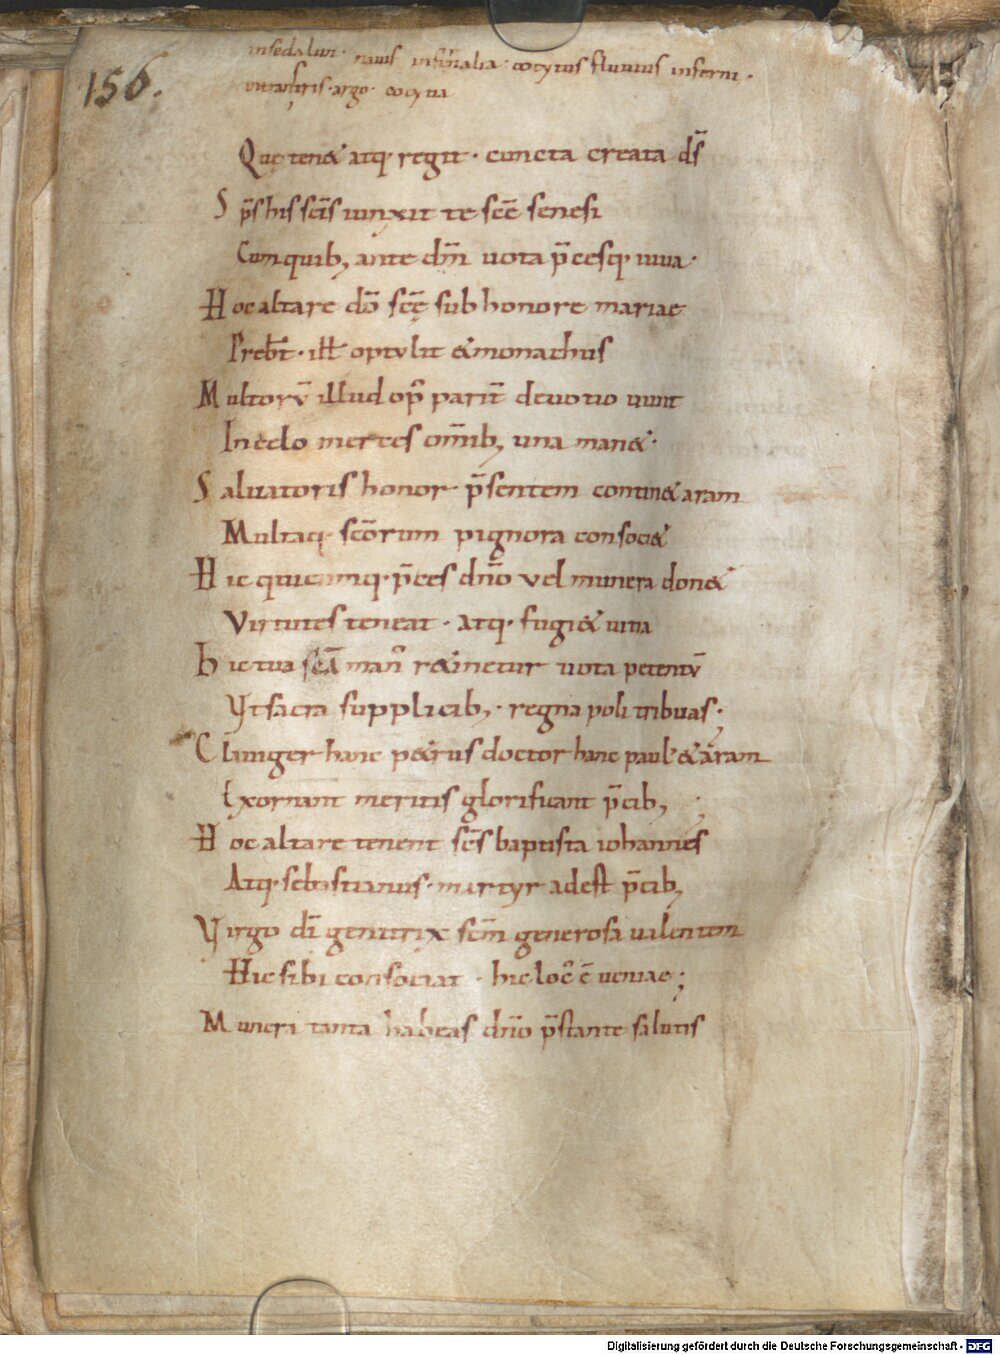 156.
nauis infernalia · cocytus fluuius inferni ·
argo · cocytia
Que ten& atq; regit · cuncta creata ds̄
S ps̄ his sc̄is iunxit te sc̄e senesi
Cum quib; ante dn̄m uota p̄cesq; iuua ·
H oc altare dō sc̄ę sub honore mariae
Prebt̄ · ill̄ optulit & monachus
M ultorū illud op̄ parit̄ deuotio uiuit
In celo mercces om̄ib; una man& ·
S aluatoris honor p̄sentem contin& aram
Multaq; sc̄orum pignora consoci&
H ic quicumq; p̄ces dn̄o vel munera don&
Virtutes teneat · atq; fugi& uitia
h ic tua sc̄a man̄ r&inetur uota petentū
Vt sacra supplicib; · regna poli tribuas ;
C lauiger hanc p&rus doctor hanc paul' & aram
Exornant meritis glorificant p̄cib;
H oc altare tenent sc̄s baptista iohannes
Atq; sebastianus · martyr adest p̄cib;
V irgo dī genitrix sc̄m generosa ualentem
Hic sibi consociat · hic loc̄ ē ueniae ;
M unera tanta habeas dn̄o p̄stante salutis
Digitalisierung gefördert durch die Deutsche Forschungsgemeinschaft - DFG